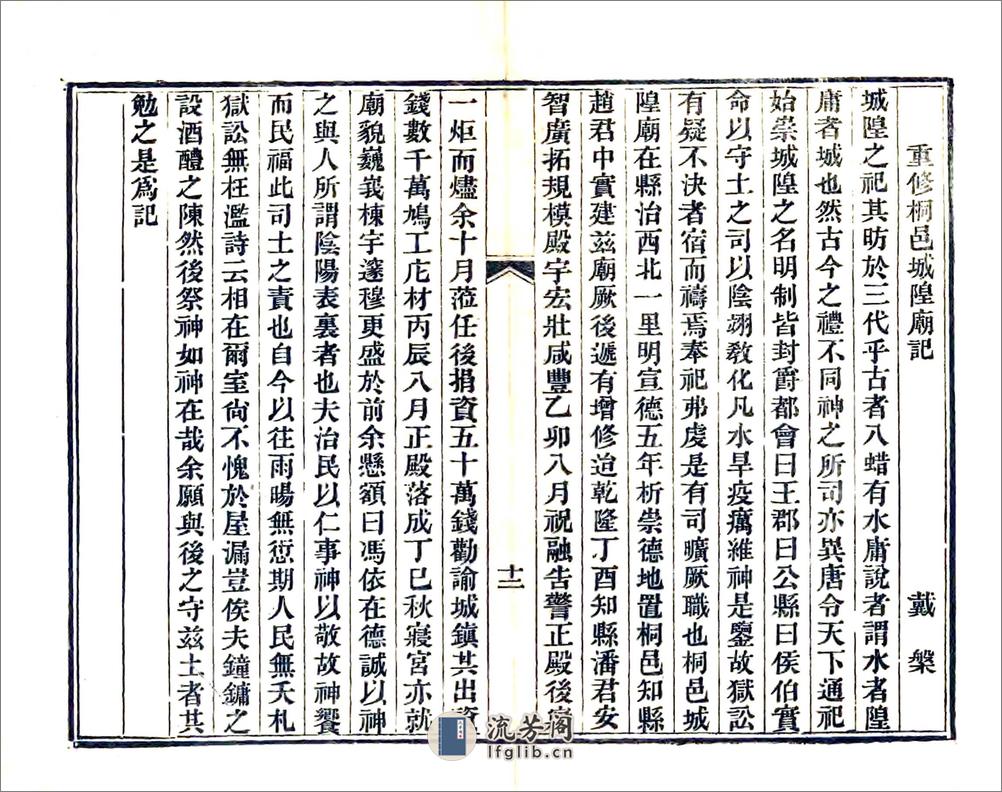 重修桐邑城隍廟記　戴槃
城隍之祀其昉於三代乎古者八蜡有水庸說者謂水者隍
庸者城也然古今之禮不同神之所司亦異唐令天下通祀
始崇城隍之名明制皆封爵都會曰王郡曰公縣曰侯伯實
命以守土之司以陰翊敎化凡水旱疫癘維神是鑒故獄訟
有疑不決者宿而禱焉奉祀弗虔是有司曠厥職也桐邑城
隍廟在縣治西北一里明宣德五年析崇德地置桐邑知縣
趙君中實建茲廟厥後遞有增修迨乾隆丁酉知縣潘君安
智廣拓規模殿宇宏壯咸豐乙卯八月祝融吿警正殿後
十二
一炬而燼余十月蒞任後捐資五十萬錢勸諭城鎮共出資
錢數千萬鳩工庀材丙辰八月正殿落成丁巳秋寢宮亦就
廟貌巍峩棟宇邃穆更盛於前余懸額曰馮依在德誠以神
之與人所謂陰陽表裏者也夫治民以仁事神以敬故神饗
而民福此司土之責也自今以往雨暘無愆期人民無夭札
獄訟無枉濫詩云相在爾室尙不愧於屋漏豈俟夫鐘鏞之
設酒醴之陳然後祭神如神在哉余願與後之守茲土者其
勉之是爲記
流芳阁
lfglib.cn